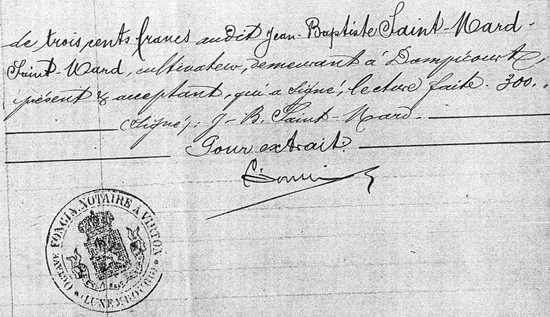 de trois cents francs audit Jean-Baptiste Saint-Mard-
Saint-Mard, cultivateur, demeurant à Dampicourt,
présent & acceptant, qui a signé, lecture faite. 300.
Signé: J-B. Saint-Mard.
Pour extrait
OCTAVE FONCIN, NOTAIRE A VIRTON
(LUXEMBOURG)